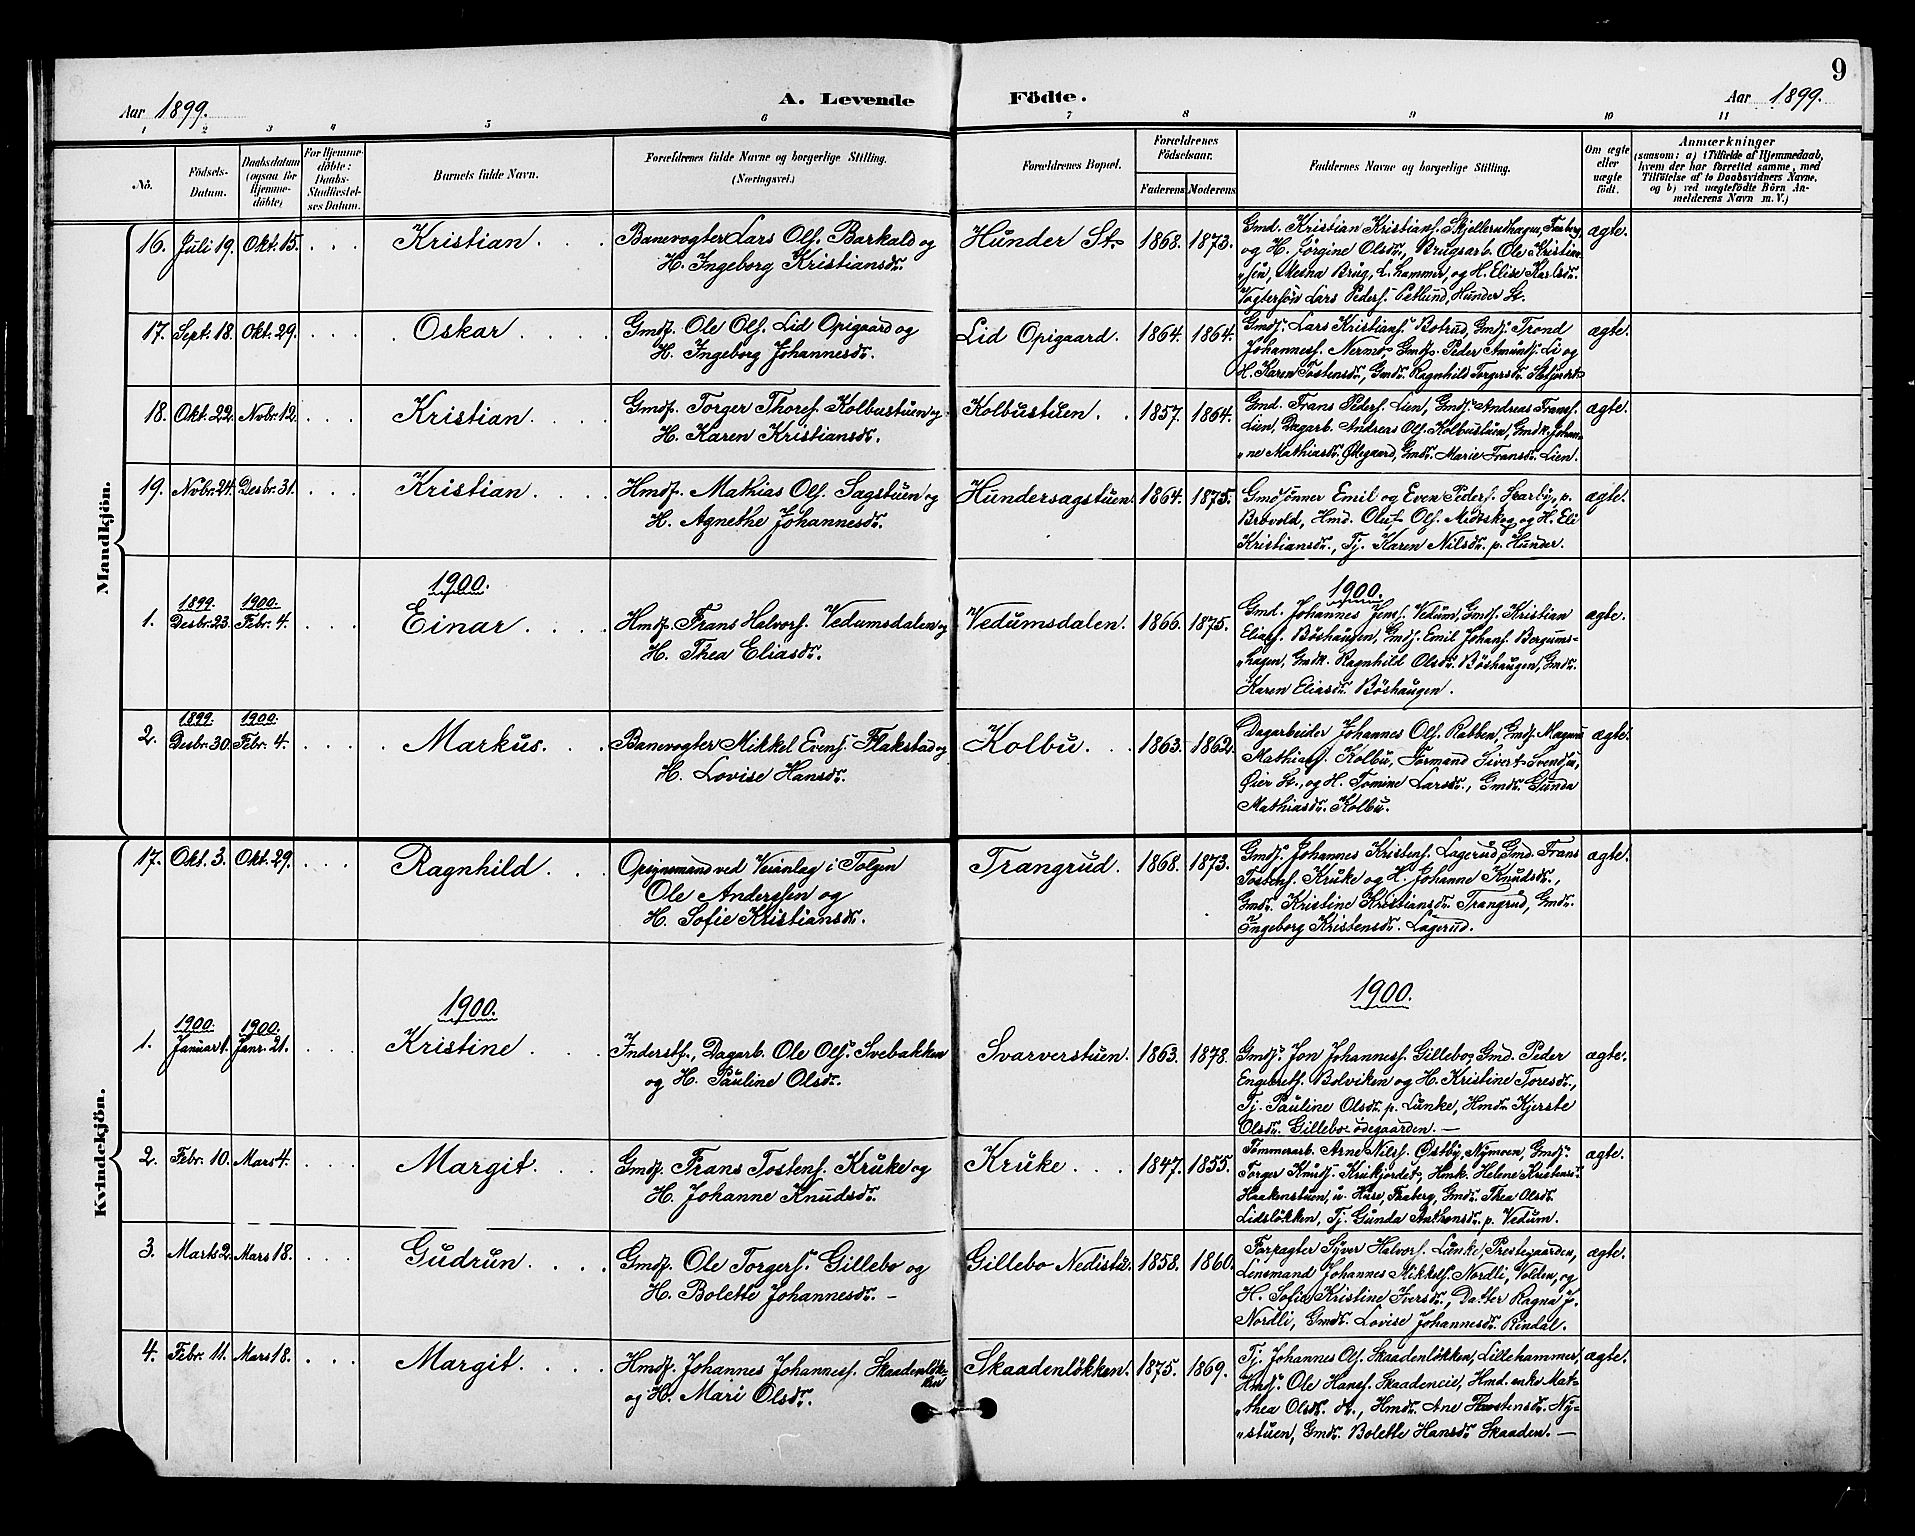 9
Aar 1899.
A. Levende Födte.
Aar 1899.
1 2 3 4 5 6 7 8 9 10 11
No.
Födsels-
Datum.
Daabsdatum
(ogsaa for
Hjemme-
döbte)
For Hjemme-
döbte:
Daabs-
Stadfæstel-
ses Datum.
Barnets fulde Navn.
Forældrenes fulde Navne og borgerlige Stilling.
(Næringsvei.)
Forældrenes Bopæl.
Forældrenes
Födselsaar.
Faderens Moderens
Faddernes Navne og borgerlige Stilling.
Om ægte
eller
uægte
födt.
Anmærkninger
(saasom: a) i Tilfælde af Hjemmedaab,
hvem der har forrettet samme, med
Tilföielse af to Daabsvidners Navne,
og b) ved uægtefödte Börn An-
melderens Navn m. V.)
Mandkjön.
16. Juli 19. Okt. 15. . . . Kristian . . .
Banevogter Lars Ols. Barkald og
H. Ingeborg Kristiansdr.
Hunder St. 1868. 1873.
Gmd. Kristian Kristians. Skjellerudhagen, Faaberg
og H. Jörgine Olsdr., Brugsarb. Ole Kristian-
"sen, Mesna Brug, L.hammer, og H. Elise Karlsdr.
Vogtersön Lars Peders. Petlund, Hunder St.
ægte.
17. Sept. 18. Okt. 29. . . . Oskar . . . .
Gmdf. Ole Ols. Lid Opigaard og
H. Ingeborg Johannesdr.
Lid Opigaard. 1864. 1864.
Gmds. Lars Kristians. Botrud, Gmds. Trond
Johanness. Nermo, Gmds. Peder Amunds. Li og
H. Karen Tostensdr., Gmdr. Ragnhild Torgersdr.
ægte.
18. Okt. 22. Novbr. 12. . . . Kristian . . . .
Gmdf. Torger Thores. Kolbustuen og
H. Karen Kristiansdr.
Kolbustuen. . 1857. 1864.
Gmd. Frans Peders. Lien, Gmds. Andreas Frans.
Lien, Dagarb. Andreas Ols. Kolbustuen, Gmdk. Johan-
"ne Mathiasdr. Ödegaard, Gmdr. Marie Fransdr. Lien.
ægte.
19. Novbr. 24. Desbr. 31. . . . Kristian . . . .
Hmdf. Mathias Ols. Sagstuen og
H. Agnethe Johannesdr.
Hundersagstuen. 1864. 1875.
Gmdsönner Emil og Even Peders. Skarby, p.
Brovold, Hmd. Oluf Ols. Midtskog og H. Eli
Kristiansdr., Tj. Karen Nilsdr. p. Hunder.
ægte.
1900.
1900.
1. 1899. Desbr. 23. 1900. Febr. 4. . . . Einar . . . .
Hmdf. Frans Halvors. Vedumsdalen og
H. Thea Eliasdr.
Vedumsdalen. 1866. 1875.
Gmd. Johannes Jens. Vedum, Gmds. Kristian
Elias. Böshaugen, Gmds. Emil Johans. Bergums-
"hagen, Gmdk. Ragnhild Olsdr. Böshaugen, Gmdr.
Karen Eliasdr. Böshaugen.
ægte.
2. 1899. Desbr. 30. 1900. Febr. 4. . . . Markus. . .
Banevogter Mikkel Evens. Flakstad og
H. Lovise Hansdr.
Kolbu. . . 1863. 1862.
Dagarbeider Johannes Ols. Rabben, Gmds. Magnus
Mathias. Kolbu, Formand Sivert Svendsen,
Öier St., og H. Tomine Larsdr., Gmdr. Gunda
Mathiasdr. Kolbu.
ægte.
Kvindekjön.
17. Okt. 3. Okt. 29. . . . Ragnhild . . .
Opsynsmand ved Veianlag i Tolgen
Ole Anderssen og
H. Sofie Kristiansdr.
Trangrud. 1868. 1873.
Gmds. Johannes Kristens. Lagerud, Gmd. Frans
Tostens. Kruke og H. Johanne Knudsdr.,
Gmdr. Kristine Kristiansdr. Trangrud, Gmdr.
Ingeborg Kristensdr. Lagerud.
ægte.
1900.
1900.
1. 1900. Januar 1. 1900. Janr. 21. . . . Kristine . . .
Inderstf., Dagarb. Ole Ols. Svebakken
og H. Pauline Olsdr.
Svarverstuen. 1863. 1878.
Gmds. Jon Johanness. Gillebo, Gmd. Peder
Engebrets. Bolviken og H. Kristine Toresdr.,
Tj. Pauline Olsdr. p. Lunke, Hmdr. Kjerste
Olsdr. Gillebo ödegaarden. —
ægte.
2. Febr. 10. Mars 4. . . . Margit. . . .
Gmdf. Frans Tostens. Kruke og
H. Johanne Knudsdr.
Kruke . . . 1847. 1855.
Tömmerarb. Arne Nils. Östby, Nymoen, Gmds.
Torger Knuds. Krukjordet, Hmk. Helene Kristensdr.
Haakenstuen, u. Hure, Faaberg, Gmdr. Thea Olsdr.
Lidslökken, Tj. Gunda Anthonsdr. p. Vedum.
ægte.
3. Marts 2. Mars 18. . . . Gudrun . . . .
Gmdf. Ole Torgers. Gillebo og
H. Bolette Johannesdr. —
Gillebo Nedistu. 1858. 1860.
Forpagter Syver Halvors. Lunke, Prestegaarden,
Lensmand Johannes Mikkels. Nordli, Volden, og
H. Sofie Kristine Iversdr., Datter Ragna J.
Nordli, Gmdr. Lovise Johannesdr. Rindal.
ægte.
4. Febr. 11. Mars 18. . . . Margit . . . .
Hmdf. Johannes Johanness. Skaadenlök-
ken
og H. Mari Olsdr.
Skaadenlökken. 1875. 1869.
Tj. Johannes Ols. Skaadenlökken, Lillehammer,
Hmds. Ole Hans. Skaadencie, Hmd. enke Mat-
"thea Olsdr. dr., Hmdr. Ane Torstensdr. Ny-
"stuen, Gmdr. Bolette Hansdr. Skaaden. —
ægte.